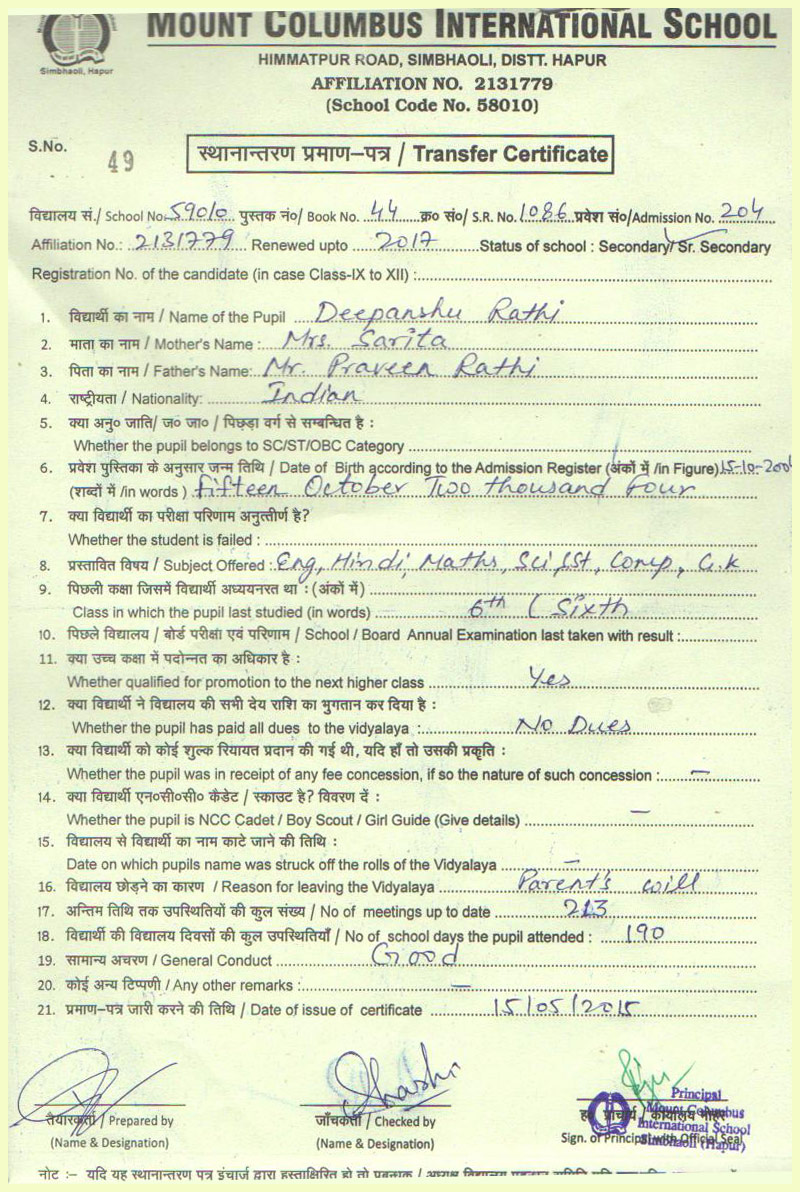 MOUNT COLUMBUS INTERNATIONAL SCHOOL
Simbhaoli, Hapur
HIMMATPUR ROAD, SIMBHAOLI, DISTT. HAPUR
AFFILIATION NO. 2131779
(School Code No. 58010)
S.No. 49
स्थानान्तरण प्रमाण-पत्र / Transfer Certificate
विद्यालय सं./ School No. 59010 पुस्तक नं०/ Book No. 44 क्र० सं०/ S.R. No. 1086 प्रवेश सं०/Admission No. 204
Affiliation No.: 2131779 Renewed upto 2017 Status of school : Secondary/ Sr. Secondary
Registration No. of the candidate (in case Class-IX to XII) :
1. विद्यार्थी का नाम / Name of the Pupil Deepanshu Rathi
2. माता का नाम / Mother's Name : Mrs. Sarita
3. पिता का नाम / Father's Name: Mr. Praveen Rathi
4. राष्ट्रीयता / Nationality: Indian
5. क्या अनु० जाति/ ज० जा० / पिछड़ा वर्ग से सम्बन्धित है :
Whether the pupil belongs to SC/ST/OBC Category
6. प्रवेश पुस्तिका के अनुसार जन्म तिथि / Date of Birth according to the Admission Register (अंकों में /in Figure) 15-10-2004
(शब्दों में /in words ) fifteen October Two thousand four
7. क्या विद्यार्थी का परीक्षा परिणाम अनुत्तीर्ण है?
Whether the student is failed :
8. प्रस्तावित विषय / Subject Offered : Eng, Hindi, Maths, Sci, SSt, Comp, G.k
9. पिछली कक्षा जिसमें विद्यार्थी अध्ययनरत था : (अंकों में)
Class in which the pupil last studied (in words) 6th ( Sixth
10. पिछले विद्यालय / बोर्ड परीक्षा एवं परिणाम / School / Board Annual Examination last taken with result :
11. क्या उच्च कक्षा में पदोन्नत का अधिकार है :
Whether qualified for promotion to the next higher class Yes
12. क्या विद्यार्थी ने विद्यालय की सभी देय राशि का भुगतान कर दिया है :
Whether the pupil has paid all dues to the vidyalaya : No Dues
13. क्या विद्यार्थी को कोई शुल्क रियायत प्रदान की गई थी, यदि हाँ तो उसकी प्रकृति :
Whether the pupil was in receipt of any fee concession, if so the nature of such concession : —
14. क्या विद्यार्थी एन०सी०सी० कैडेट / स्काउट है? विवरण दें :
Whether the pupil is NCC Cadet / Boy Scout / Girl Guide (Give details) —
15. विद्यालय से विद्यार्थी का नाम काटे जाने की तिथि :
Date on which pupils name was struck off the rolls of the Vidyalaya —
16. विद्यालय छोड़ने का कारण / Reason for leaving the Vidyalaya Parent's will
17. अन्तिम तिथि तक उपस्थितियों की कुल संख्य / No of meetings up to date 213
18. विद्यार्थी की विद्यालय दिवसों की कुल उपस्थितियाँ / No of school days the pupil attended : 190
19. सामान्य अचरण / General Conduct Good
20. कोई अन्य टिप्पणी / Any other remarks : —
21. प्रमाण-पत्र जारी करने की तिथि / Date of issue of certificate 15/05/2015
Shashi
Principal
Mount Columbus
International School
Simbhaoli (Hapur)
तैयारकर्ता / Prepared by जाँचकर्ता / Checked by ह० प्राचार्य / कार्यालय मोहर
(Name & Designation) (Name & Designation) Sign. of Principal with Official Seal
नोट :- यदि यह स्थानान्तरण पत्र इंचार्ज द्वारा हस्ताक्षिरित हो तो